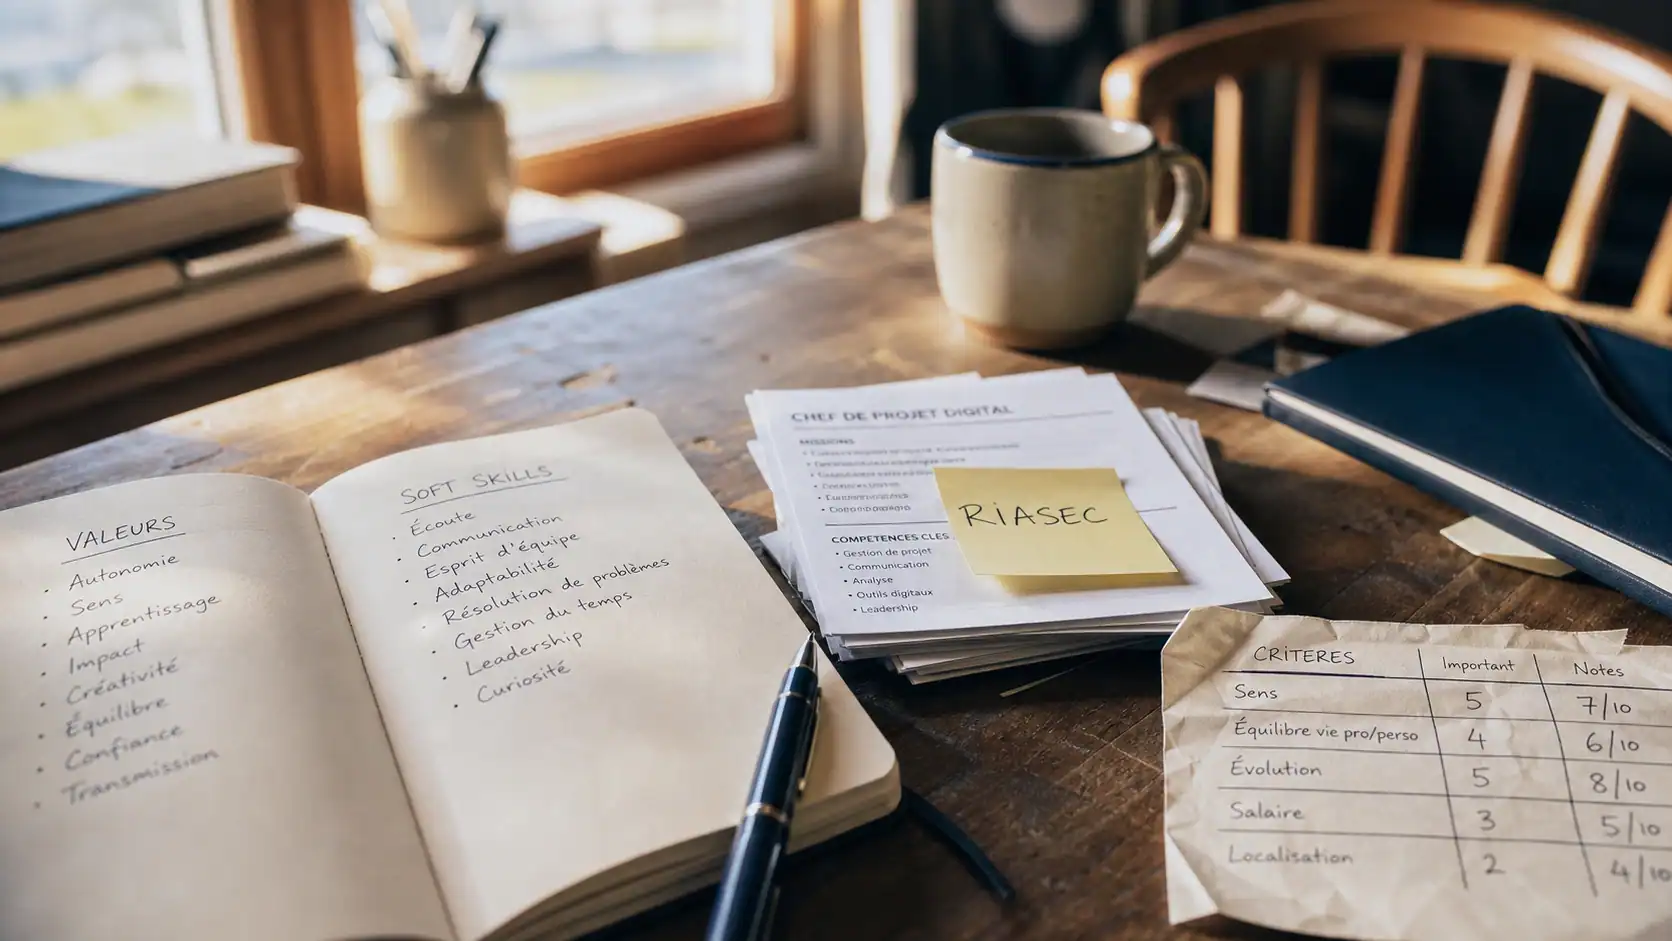 VALEURS
• Autonomie
• Sens
• Apprentissage
• Impact
• Créativité
• Équilibre
• Confiance
• Transmission
SOFT SKILLS
• Écoute
• Communication
• Esprit d'équipe
• Adaptabilité
• Résolution de problèmes
• Gestion du temps
• Leadership
• Curiosité
CHEF DE PROJET DIGITAL
MISSIONS
COMPETENCES CLES
• Gestion de projet
• Communication
• Analyse
• Outils digitaux
• Leadership
RIASEC
CRITERES Important Notes
Sens 5 7/10
Équilibre vie pro/perso 4 6/10
Évolution 5 8/10
Salaire 3 5/10
Localisation 2 4/10